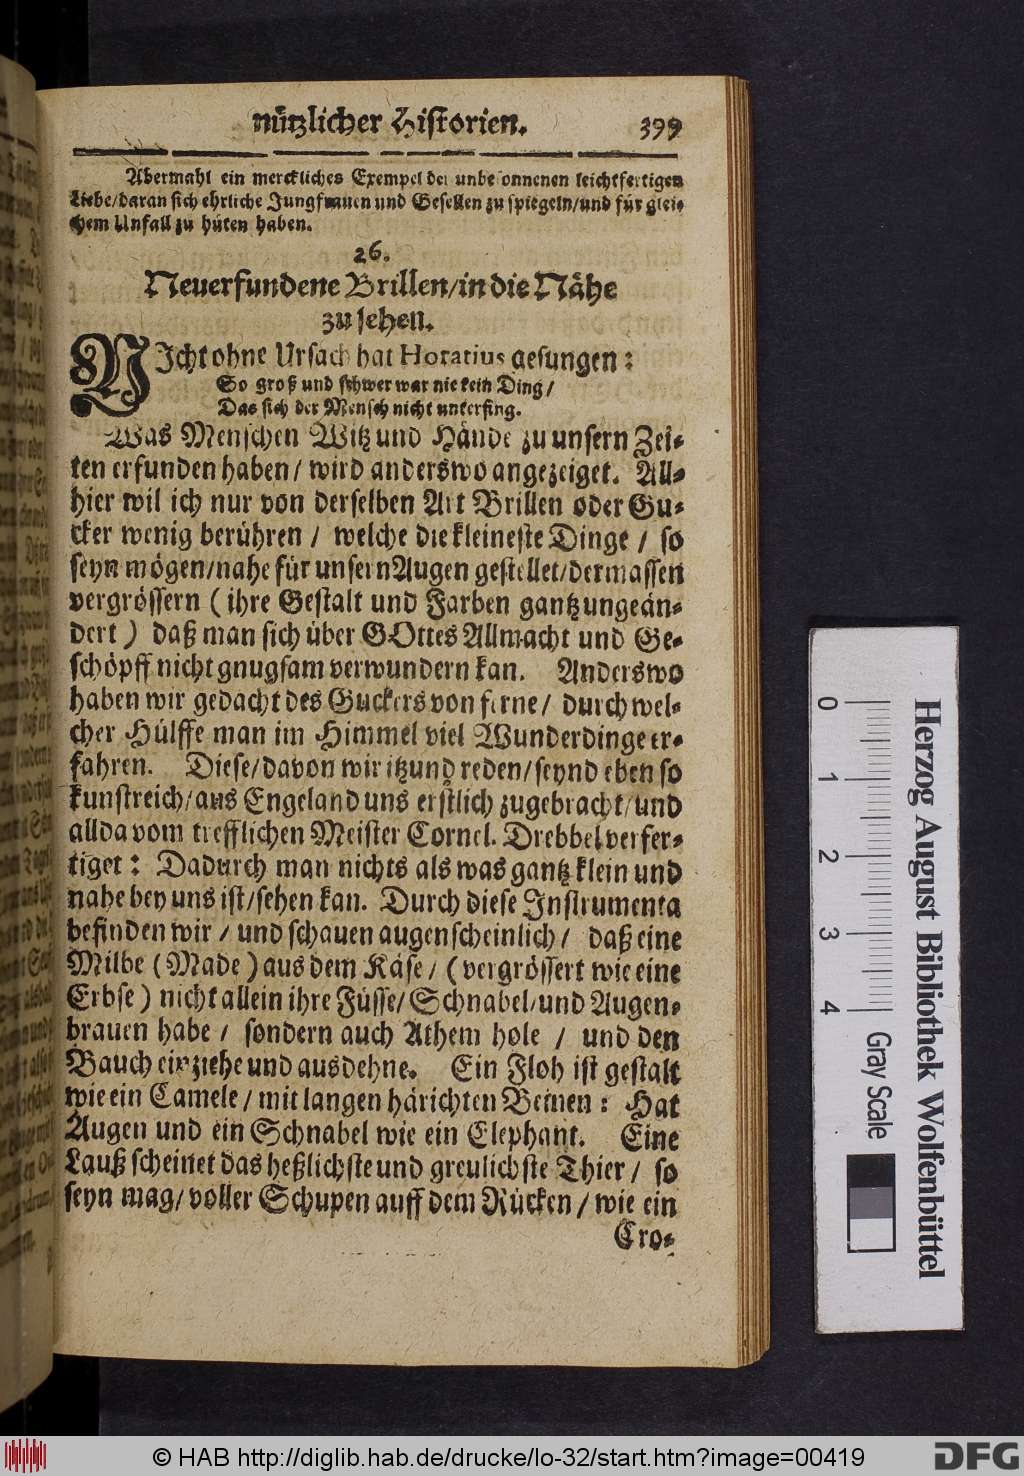 nützlicher Historien. 399
Abermahl ein merckliches Exempel der unbesonnenen leichtfertigen
Liebe/daran sich ehrliche Jungfrauen und Gesellen zu spiegeln/und für glei-
chem Unfall zu hüten haben.
26.
Neuerfundene Brillen/in die Nähe
zu sehen.
NIcht ohne Ursach hat Horatius gesungen:
So groß und schwer war nie kein Ding/
Das sich der Mensch nicht unterfing.
Was Menschen Witz und Hände zu unsern Zei-
ten erfunden haben/ wird anderswo angezeiget. All-
hier wil ich nur von derselben Art Brillen oder Gu-
cker wenig berühren / welche die kleineste Dinge / so
seyn mögen/nahe für unsern Augen gestellet/dermassen
vergrössern (ihre Gestalt und Farben gantz ungeän-
dert) daß man sich über GOttes Allmacht und Ge-
schöpff nicht gnugsam verwundern kan. Anderswo
haben wir gedacht des Guckers von ferne/ durch wel-
cher Hülffe man im Himmel viel Wunderdinge er-
fahren. Diese/davon wir itzund reden/seynd eben so
kunstreich/aus Engeland uns erstlich zugebracht/und
allda vom trefflichen Meister Cornel. Drebbel verfer-
tiget: Dadurch man nichts als was gantz klein und
nahe bey uns ist/sehen kan. Durch diese Instrumenta
befinden wir / und schauen augenscheinlich/ daß eine
Milbe (Made) aus dem Käse/ (vergrössert wie eine
Erbse) nicht allein ihre Füsse/Schnabel/und Augen-
brauen habe / sondern auch Athem hole / und den
Bauch einziehe und ausdehne. Ein Floh ist gestalt
wie ein Camele/ mit langen härichten Beinen: Hat
Augen und ein Schnabel wie ein Elephant. Eine
Lauß scheinet das heßlichste und greulichste Thier/ so
seyn mag/ voller Schupen auff dem Rücken / wie ein
Cro-
Herzog August Bibliothek Wolfenbüttel
0 1 2 3 4 Gray Scale
© HAB http://diglib.hab.de/drucke/lo-32/start.htm?image=00419
DFG